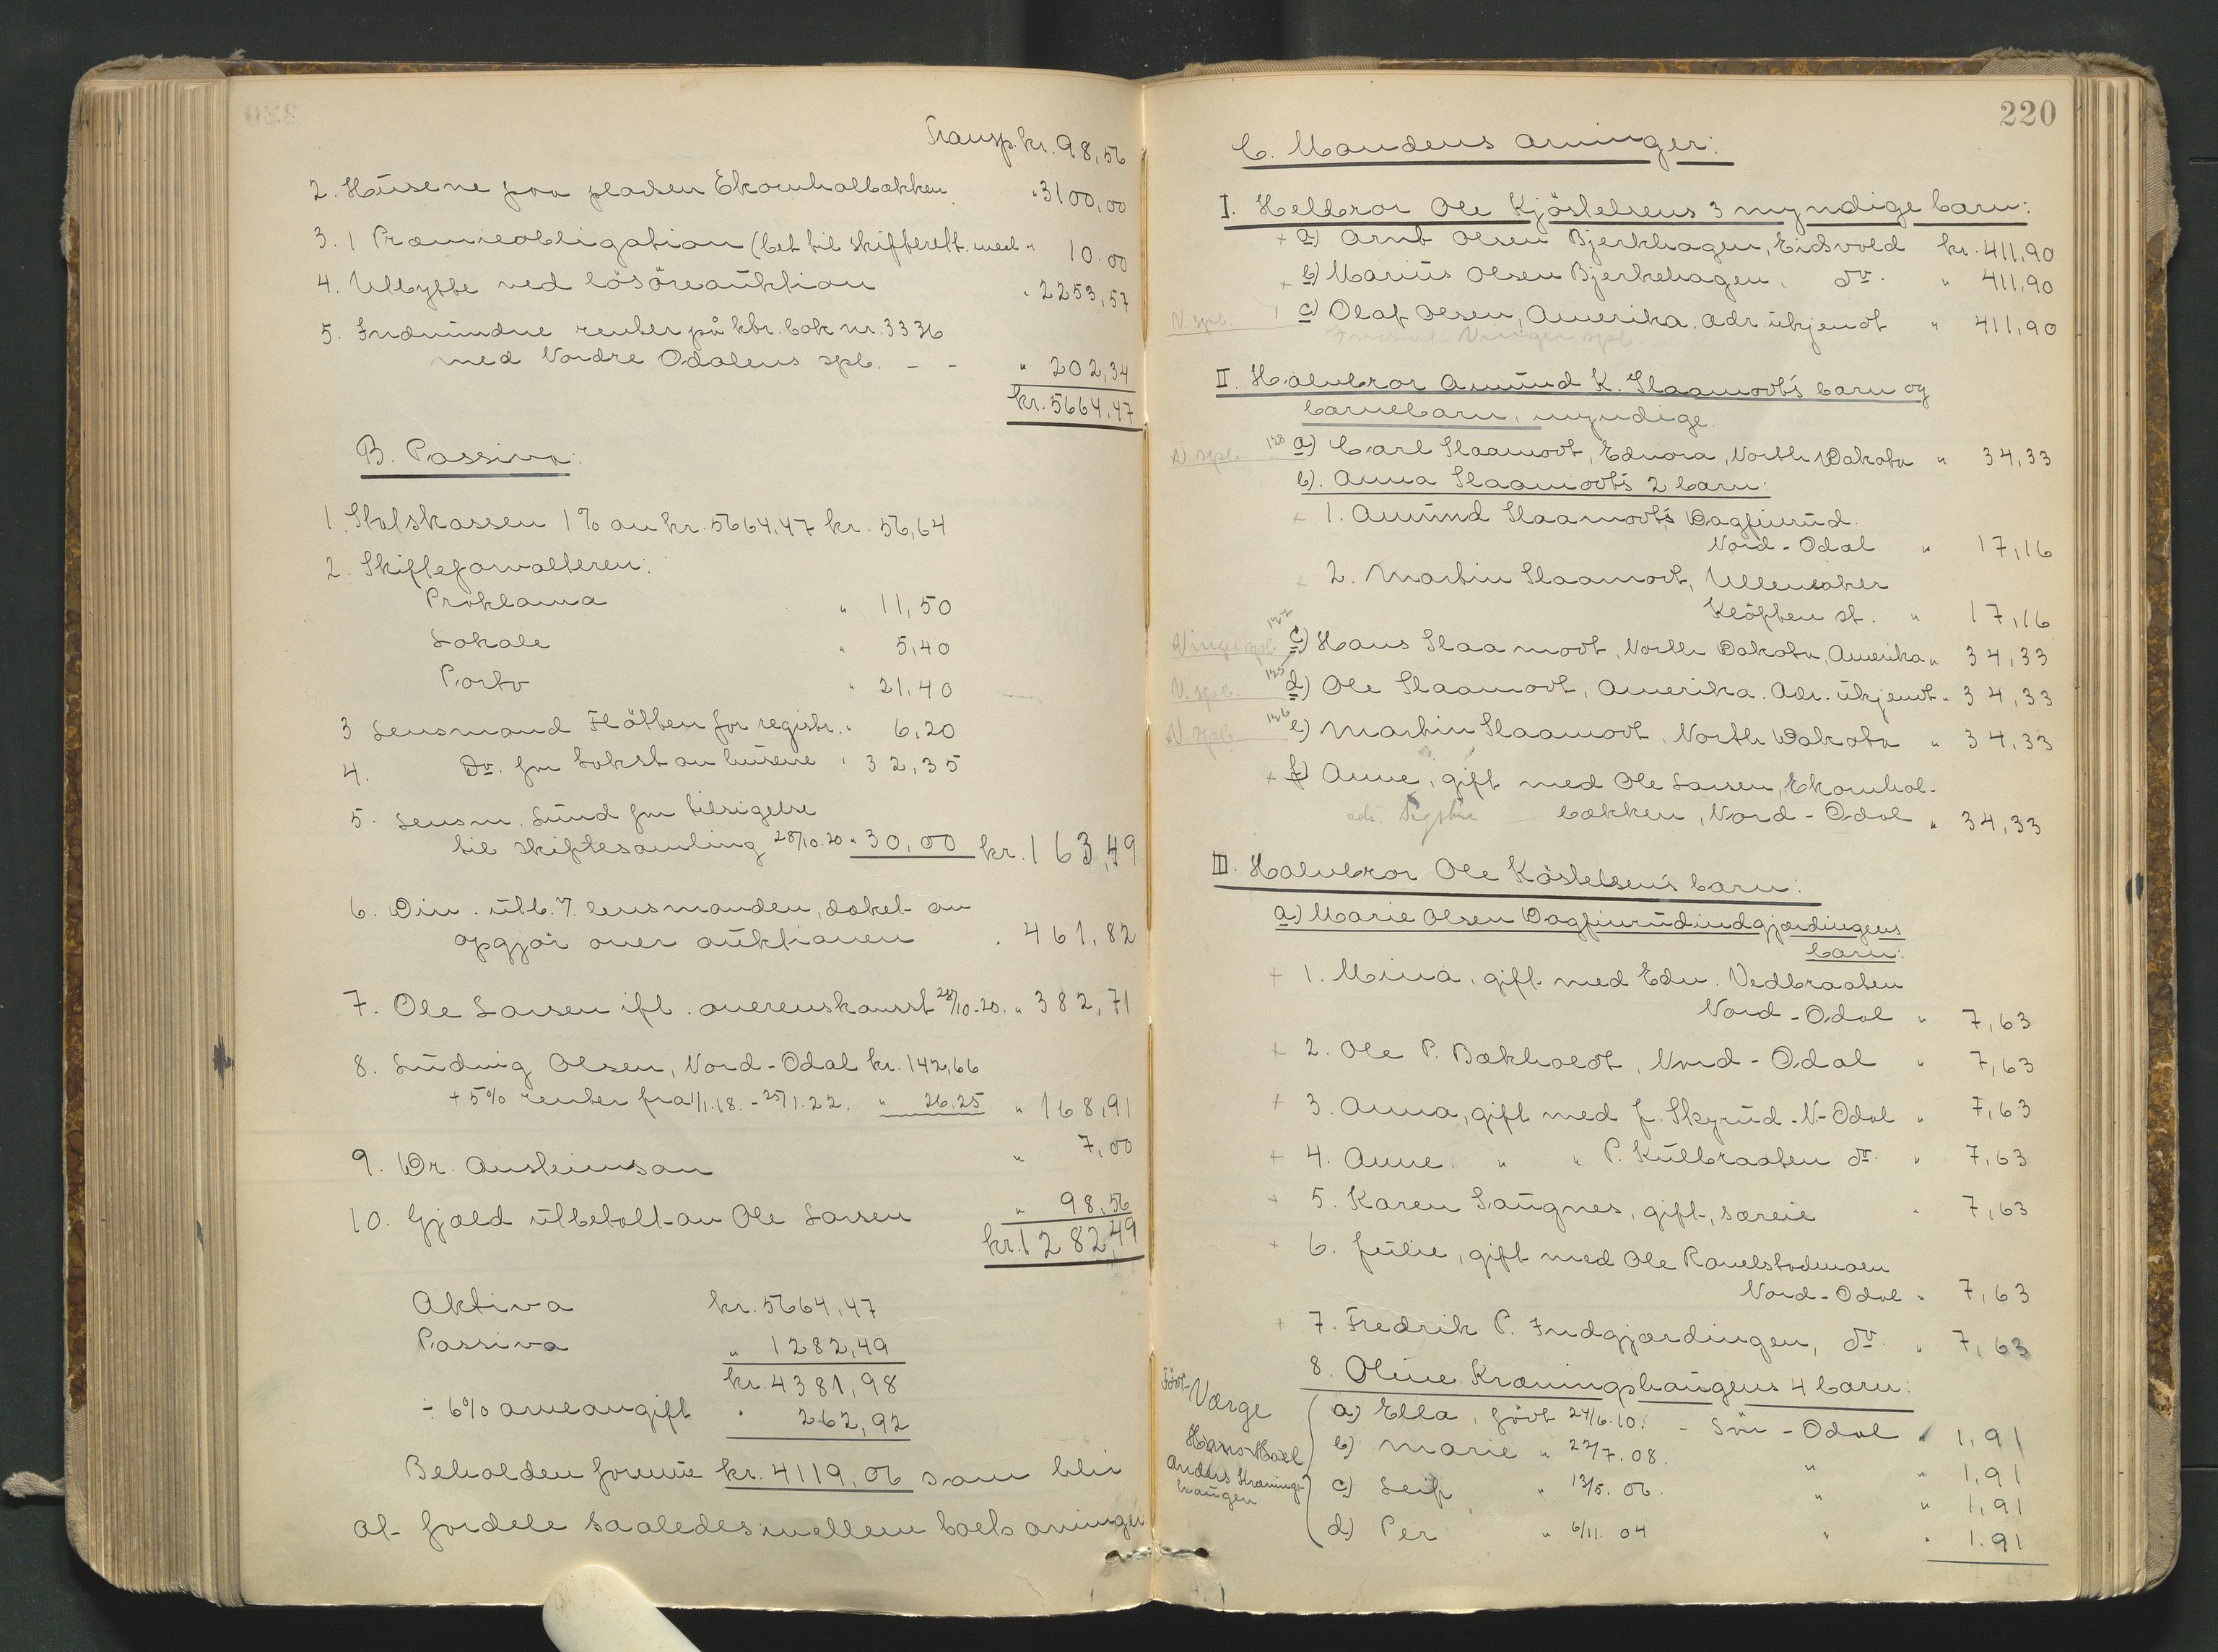 Transp. kr. 98,56
2. Husene paa pladsen Ekornholbækken " 3100,00
3. 1 Præmieobligation (bet. til skifterett. med " 10.00
4. Utbytte ved lösöreauktion " 2253,57
5. Indvundne renter på ktr. bok nr. 3336
med Nordre Odalens spb. - - " 202,34
kr. 5664,47
B. Passiva:
1. Statskassen 1% av kr. 5664,47 kr. 56,64
2. Skifteforvalteren:
Proklama " 11,50
Lokale " 5,40
Porto " 21,40
3 Lensmand Flötten for registr. " 6,20
4. Do. for takst av husene " 32,35
5. Lensm. Lund for tilsigelse
til skiftesamling 28/10.20 " 30,00 kr. 163,49
6. Div. utb. f. lensmanden, dækt. av
opgjör over auktionen " 461,82
7. Ole Larsen ifl. overenskomst 28/10-20. " 382,71
8. Ludvig Olsen, Nord-Odal kr. 142,66
+ 5% renter fra 1/1.18. - 25/1.22. " 26,25 " 168,91
9. Dr. Austeimsan " 7,00
10. Gjæld utbetalt av Ole Larsen " 98,56
kr. 1282,49
Aktiva kr. 5664,47
Passiva " 1282,49
kr. 4381,98
÷ 6% arveavgift " 262,92
Beholden formue kr. 4119,06 som blir
at fordele saaledes mellem boets arvinger
220
C. Mandens arvinger:
I. Helbror Ole Kjöstelsens 3 myndige barn:
+ a) Arnt Olsen Bjerkhagen, Eidsvold kr. 411,90
+ b) Marius Olsen Bjerkehagen, do. " 411,90
N. spb. c) Olaf Olsen, Amerika. Adr. ukjendt " 411,90
Indsat Vinger spb.
II. Halvbror Amund K. Slaamoot's barn og
barnebarn, myndige.
N. spb. 128 a) Carl Slaamoot, Ednora, North Dakota " 34,33
b). Anna Slaamoot's 2 barn:
+ 1. Amund Slaamoot's Dagfinrud.
Nord-Odal " 17,16
+ 2. Martin Slaamoot, Ullensaker
Klöften st. " 17,16
Vinger spb. 127 c) Hans Slaamoot, North Dakota, Amerika " 34,33
V. spb. 125 d) Ole Slaamoot, Amerika. Adr. ukjendt " 34,33
N. spb. 126 e) Martin Slaamoot, North Dakota " 34,33
+ f) Anne, gift med Ole Larsen, Ekornhol-
bækken, Nord-Odal " 34,33
III. Halvbror Ole Köstelsen's barn:
a) Marie Olsen Dagfinrudindgjærdingens
barn:
+ 1. Mina, gift med Edv. Vedbraaten
Nord-Odal " 7,63
+ 2. Ole P. Bækholdt, Nord-Odal " 7,63
+ 3. Anna, gift med J. Skyrud - N.-Odal " 7,63
+ 4. Anne. " " P. Kulbraaten do. " 7,63
+ 5. Karen Saugnes, gift, særeie " 7,63
+ 6. Julie, gift med Ole Ravelstadmoen
Nord-Odal " 7,63
+ 7. Fredrik P. Indgjærdingen, do. " 7,63
8. Oline Kræmingshaugens 4 barn:
Værge
Hans Hoel
Anders Kræmings-
haugen
a) Ella, född 24/6.10. - Sör-Odal " 1,91
b) Marie " 22/7.08. " " 1,91
c) Leif " 13/5.06. " " 1,91
d) Per " 6/11.04 " " 1,91